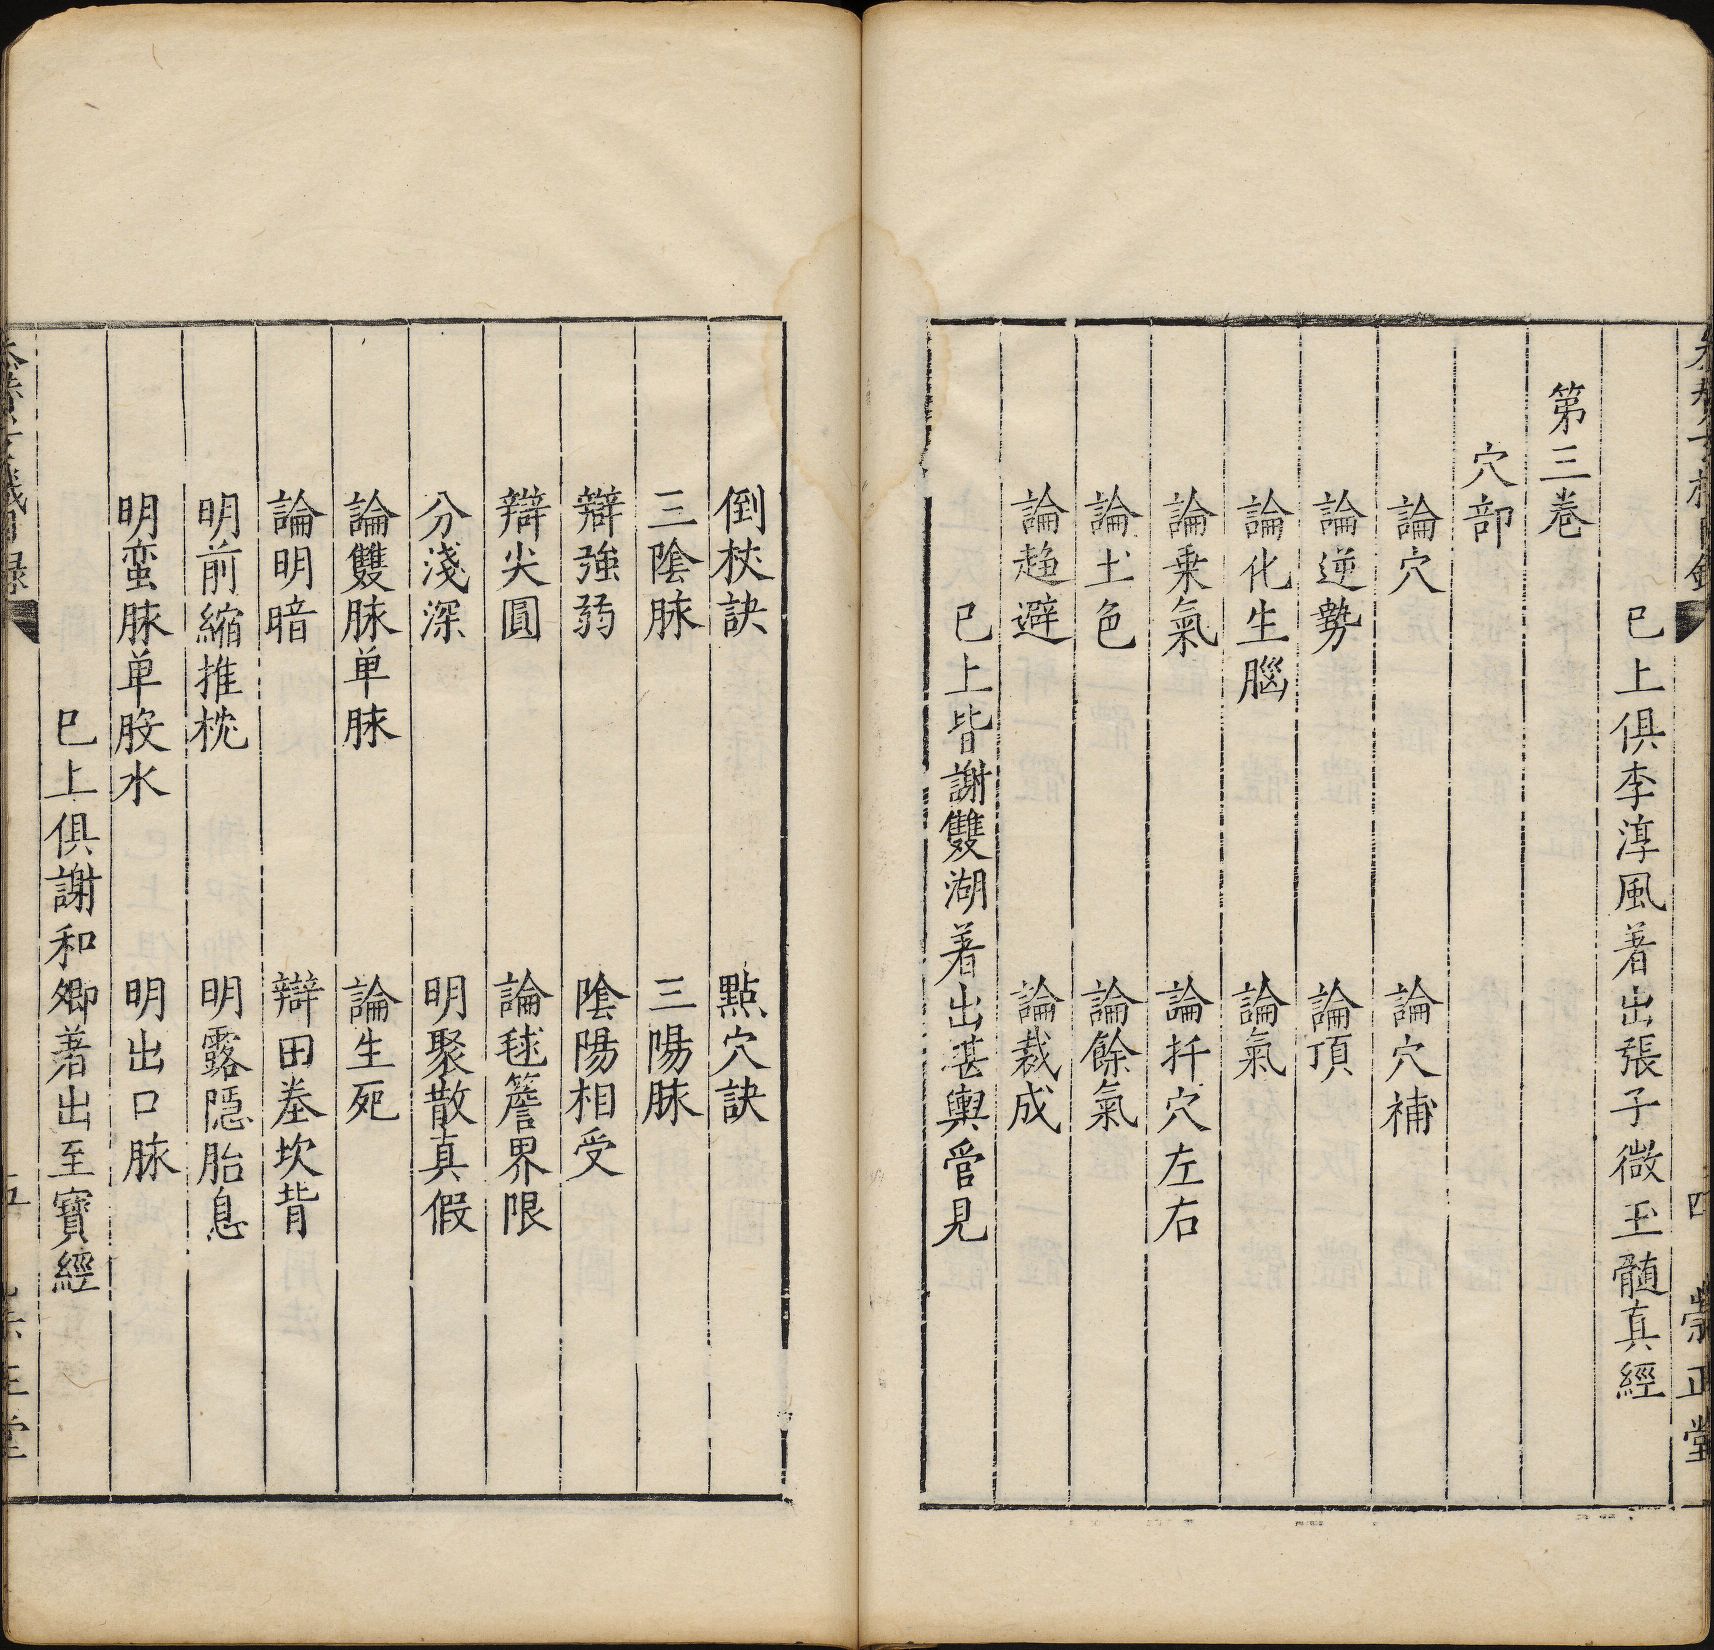 已上俱李淳風著出張子微玉髓真經
第三卷
穴部
論穴　論穴補
論逆勢　論頂
論化生腦　論氣
論乗氣　論扦穴左右
論土色　論餘氣
論趨避　論裁成
已上皆謝雙湖著出堪輿管見
四　崇正堂
倒杖訣　點穴訣
三陰脉　三陽脉
辯強弱　陰陽相受
辯尖圓　論毬簷界限
分淺深　明聚散真假
論雙脉单脉　論生死
論明暗　辯田坔坎背
明前縮推枕　明露隠胎息
明蛮脉单股水　明出口脉
已上俱謝和卿著出至寶經